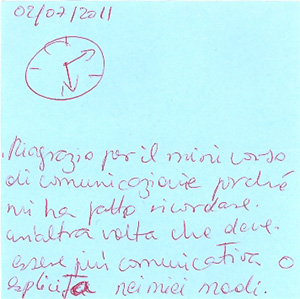 02/07/2011
.Riagrazio per il mini corso
di comunicazione perché
mi ha fatto ricordare.
un'altra volta che deve.
essere più comunicativa o
esplicita nei miei modi.